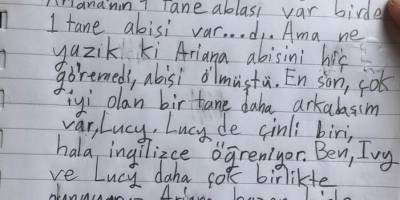 Ariana'nın 1 tane ablası var birde
1 tane abisi var...dı. Ama ne
yazik ki Ariana abisini hiç
göremedi, abisi ölmüştü. En son, çok
iyi olan bir tane daha arkadaşım
var, Lucy. Lucy de çinli biri,
hala ingilizce öğreniyor. Ben, Ivy
ve Lucy daha çok birlikte